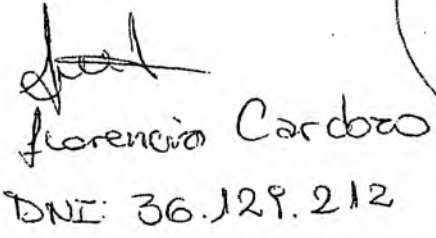 Florencia Cardozo
DNI: 36.129.212